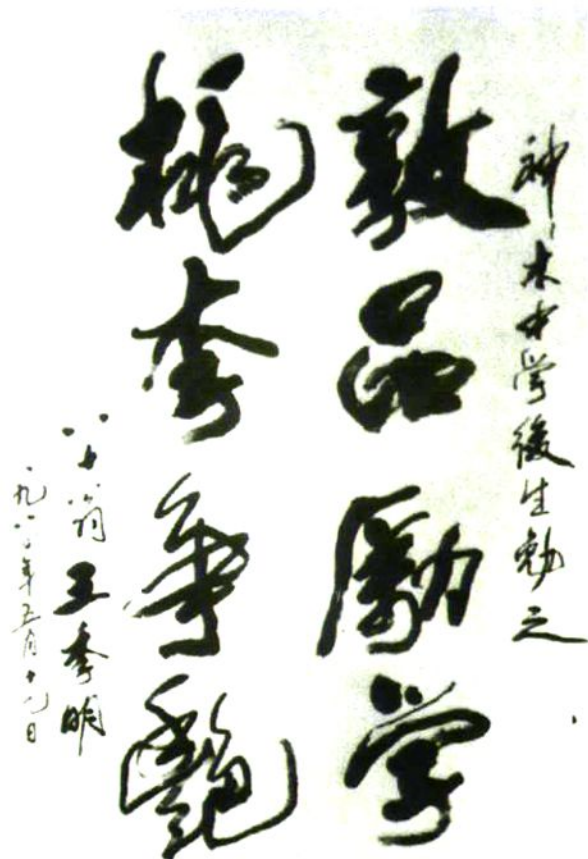 神木中学後生勉之
敦品勵学
桃李争艳
八十翁 王季明
一九八八年五月十九日